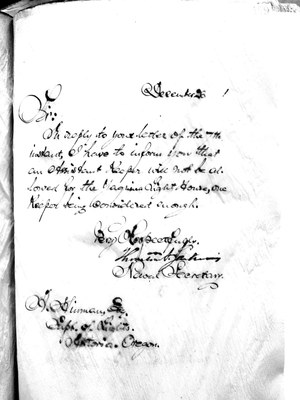 December 1
Sir:
In reply to your letter of the 7th
instant, I have to inform you that
an Assistant Keeper will not be al-
lowed for the Yaquina Light House, one
Keeper being considered enough.
Very Respectfully,
Naval Secretary.
Esq.
Supt. of Lights,
Astoria, Oregon.